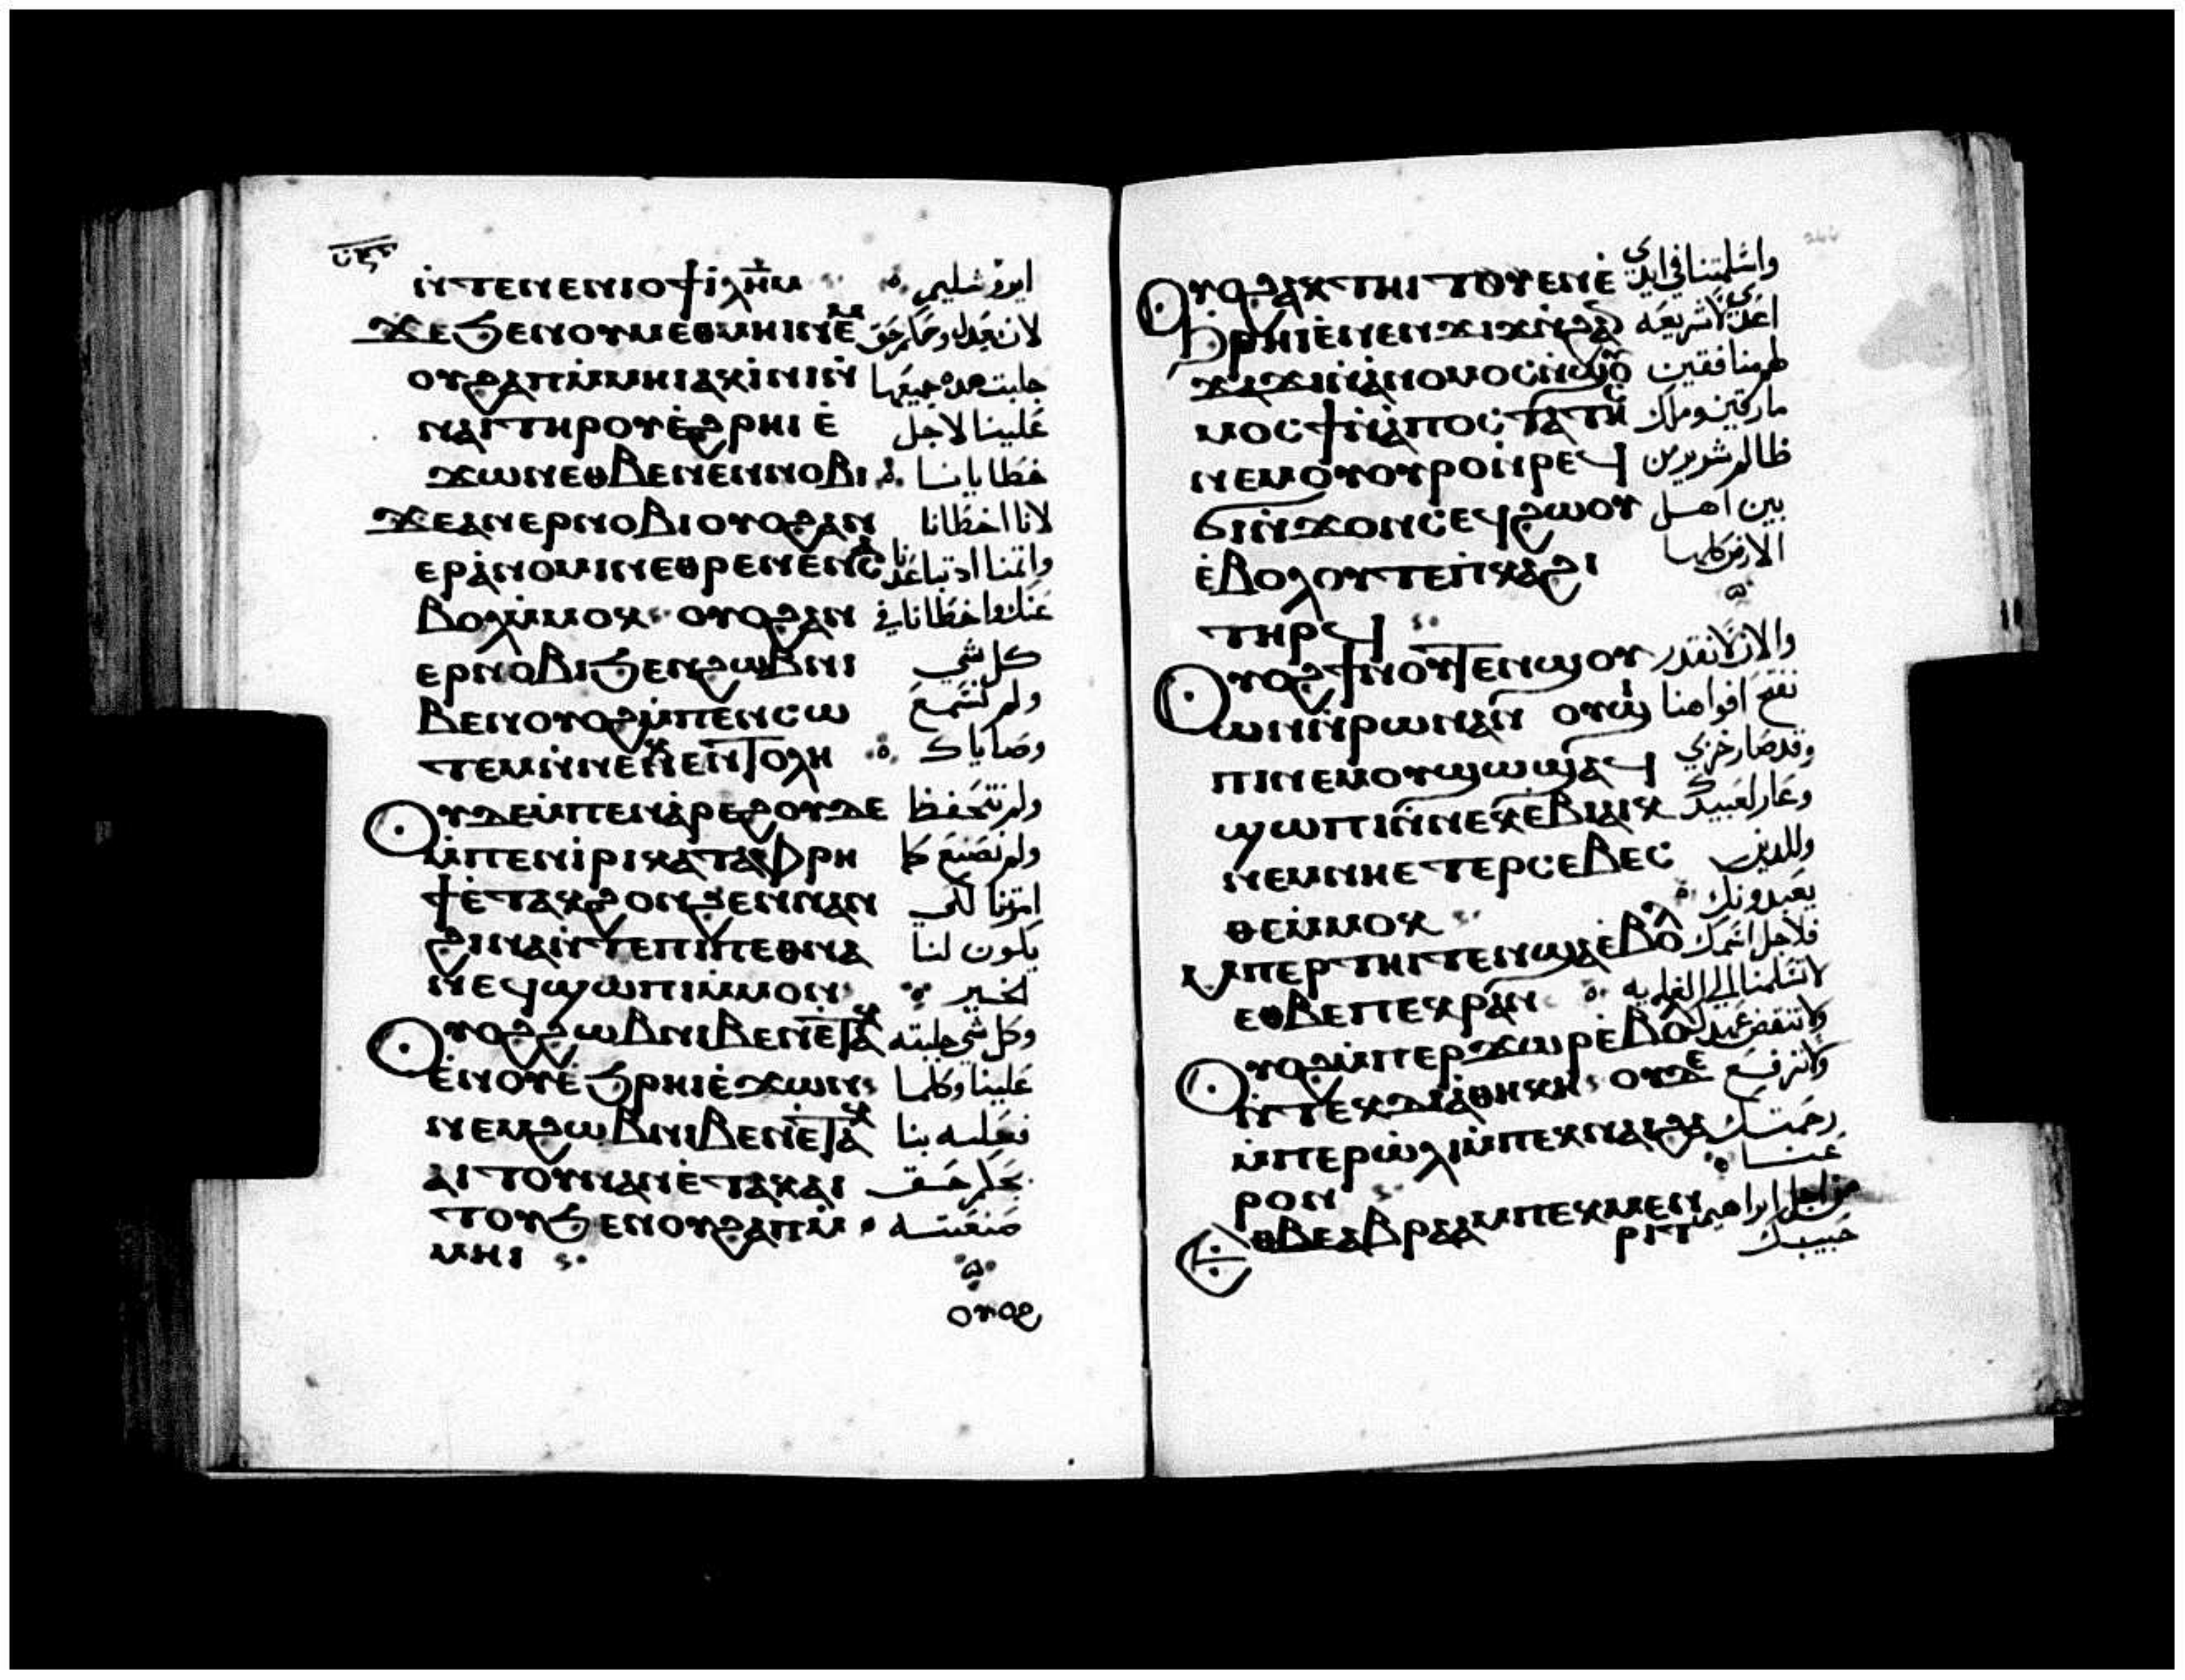 ⲛ̀ⲧⲉⲛⲉⲛⲓⲟϯ ⲓ̀ⲗ̅ⲏ̅ⲙ ايروشليم
ϫⲉϧⲉⲛⲟⲩⲙⲉⲑⲙⲏⲓⲛⲉⲙ لان بعدل وحكم حق
ⲟⲩϩⲁⲡⲙ̀ⲙⲏⲓⲁⲕⲓ̀ⲛⲓⲛ̀ جلبت هذه جميعها
ⲛⲁⲓⲧⲏⲣⲟⲩⲉ̀ϩⲣⲏⲓⲉ̀ علينا لاجل
ϫⲱⲛⲉⲑⲃⲉⲛⲉⲛⲛⲟⲃⲓ خطايانا
ϫⲉⲁⲛⲉⲣⲛⲟⲃⲓⲟⲩⲟϩⲁⲛ لاننا اخطانا
ⲉⲣⲁ̀ⲛⲟⲙⲓⲛⲉⲑⲣⲉⲛⲉⲛⲥⲁ واثمنا اذ تباعدنا
ⲃⲟⲗⲙ̀ⲙⲟⲕ ⲟⲩⲟϩⲁⲛ عنك واخطانا في
ⲉⲣⲛⲟⲃⲓϧⲉⲛϩⲱⲃⲛⲓ كل شي
ⲃⲉⲛⲟⲩⲟϩⲙ̀ⲡⲉⲛⲥⲱ ولم نسمع
ⲧⲉⲙⲛ̀ⲛⲉⲕⲉⲛⲧⲟⲗⲏ وصاياك
ⲟⲩⲇⲉⲙ̀ⲡⲉⲛⲁ̀ⲣⲉϩⲟⲩⲇⲉ ولم نتحفظ
ⲙ̀ⲡⲉⲛⲓ̀ⲣⲓⲕⲁⲧⲁⲫⲣⲏ ولم نصنع كما
ϯⲉ̀ⲧⲁⲕϩⲟⲛϩⲉⲛⲛⲁⲛ امرتنا لكي
ϩⲓⲛⲁⲛ̀ⲧⲉⲡⲓⲡⲉⲑⲛⲁ يكون لنا
ⲛⲉϥϣⲱⲡⲓⲙ̀ⲙⲟⲛ الخير
ⲟⲩⲟϩϩⲱⲃⲛⲓⲃⲉⲛⲉ̀ⲧⲁⲕ وكل شي جلبته
ⲉ̀ⲛⲟⲩⲉ̀ϧⲣⲏⲓⲉ̀ϫⲱⲛ علينا وكلما
ⲛⲉⲙϩⲱⲃⲛⲓⲃⲉⲛⲉ̀ⲧⲁⲕ فعلته بنا
ⲁⲓⲧⲟⲩⲛⲁⲛⲉ̀ⲧⲁⲕⲁⲓ بحكم حق
ⲧⲟⲩϧⲉⲛⲟⲩϩⲁⲡⲙ̀ صنعته
ⲙⲏⲓ
ⲟⲩⲟϩ
ⲟⲩⲟϩⲁⲕⲧⲏⲓⲧⲟⲩⲉⲛⲉ̀ واسلمتنا في ايدي
ϧⲣⲏⲓⲉ̀ⲛⲉⲛϫⲓϫⲛ̀ϩⲁⲛ اعدا لا شريعه
ϫⲁϫⲓⲛ̀ⲁⲛⲟⲙⲟⲥⲛ̀ϣⲟⲩ لهم منافقين
ⲙⲟⲥϯⲛ̀ⲁⲡⲟⲥⲧⲁⲧⲏⲥ مارقين وملك
ⲛⲉⲙⲟⲩⲟⲩⲣⲟⲛ̀ⲣⲉϥ ظالم شرير من
ϭⲓⲛ̀ϫⲟⲛⲥⲉϥϩⲱⲟⲩ بين اهل
ⲉ̀ⲃⲟⲗⲟⲩⲧⲉⲡ̀ⲕⲁϩⲓ الارض كلها
ⲧⲏⲣϥ
ⲟⲩⲟϩϯⲛⲟⲩⲧⲉⲛϣⲟⲩ والان لا نقدر
ⲱⲛⲛ̀ⲣⲱⲛⲁⲛ ⲟⲩϣⲓ نفتح افواهنا
ⲡⲓⲛⲉⲙⲟⲩϣⲱϣⲁϥ وقد صار خزي
ϣⲱⲡⲓⲛ̀ⲛⲉⲕⲉⲃⲓⲁⲓⲕ وعار لعبيدك
ⲛⲉⲙⲛⲏⲉⲧⲉⲣⲥⲉⲃⲉⲥ وللذين
ⲑⲉⲙ̀ⲙⲟⲕ يعبدونك
ⲙ̀ⲡⲉⲣⲧⲏⲓⲧⲉⲛϣⲁⲉ̀ⲃⲟⲗ فلاجل اسمك
ⲉⲑⲃⲉⲡⲉⲕⲣⲁⲛ لا تسلمنا الي الغايه
ⲟⲩⲟϩⲙ̀ⲡⲉⲣϫⲱⲣⲉ̀ⲃⲟⲗ ولا تنقض عهدك
ⲛ̀ⲧⲉⲕⲇⲓⲁⲑⲏⲕⲏ ⲟⲩⲇⲉ ولا ترفع
ⲙ̀ⲡⲉⲣⲱ̀ⲗⲓⲙ̀ⲡⲉⲕⲛⲁⲓϩⲁ رحمتك
ⲣⲟⲛ عنا
ⲉⲑⲃⲉⲁⲃⲣⲁⲁⲙⲡⲉⲕⲙⲉⲛ من اجل ابراهيم
ⲣⲓⲧ حبيبك